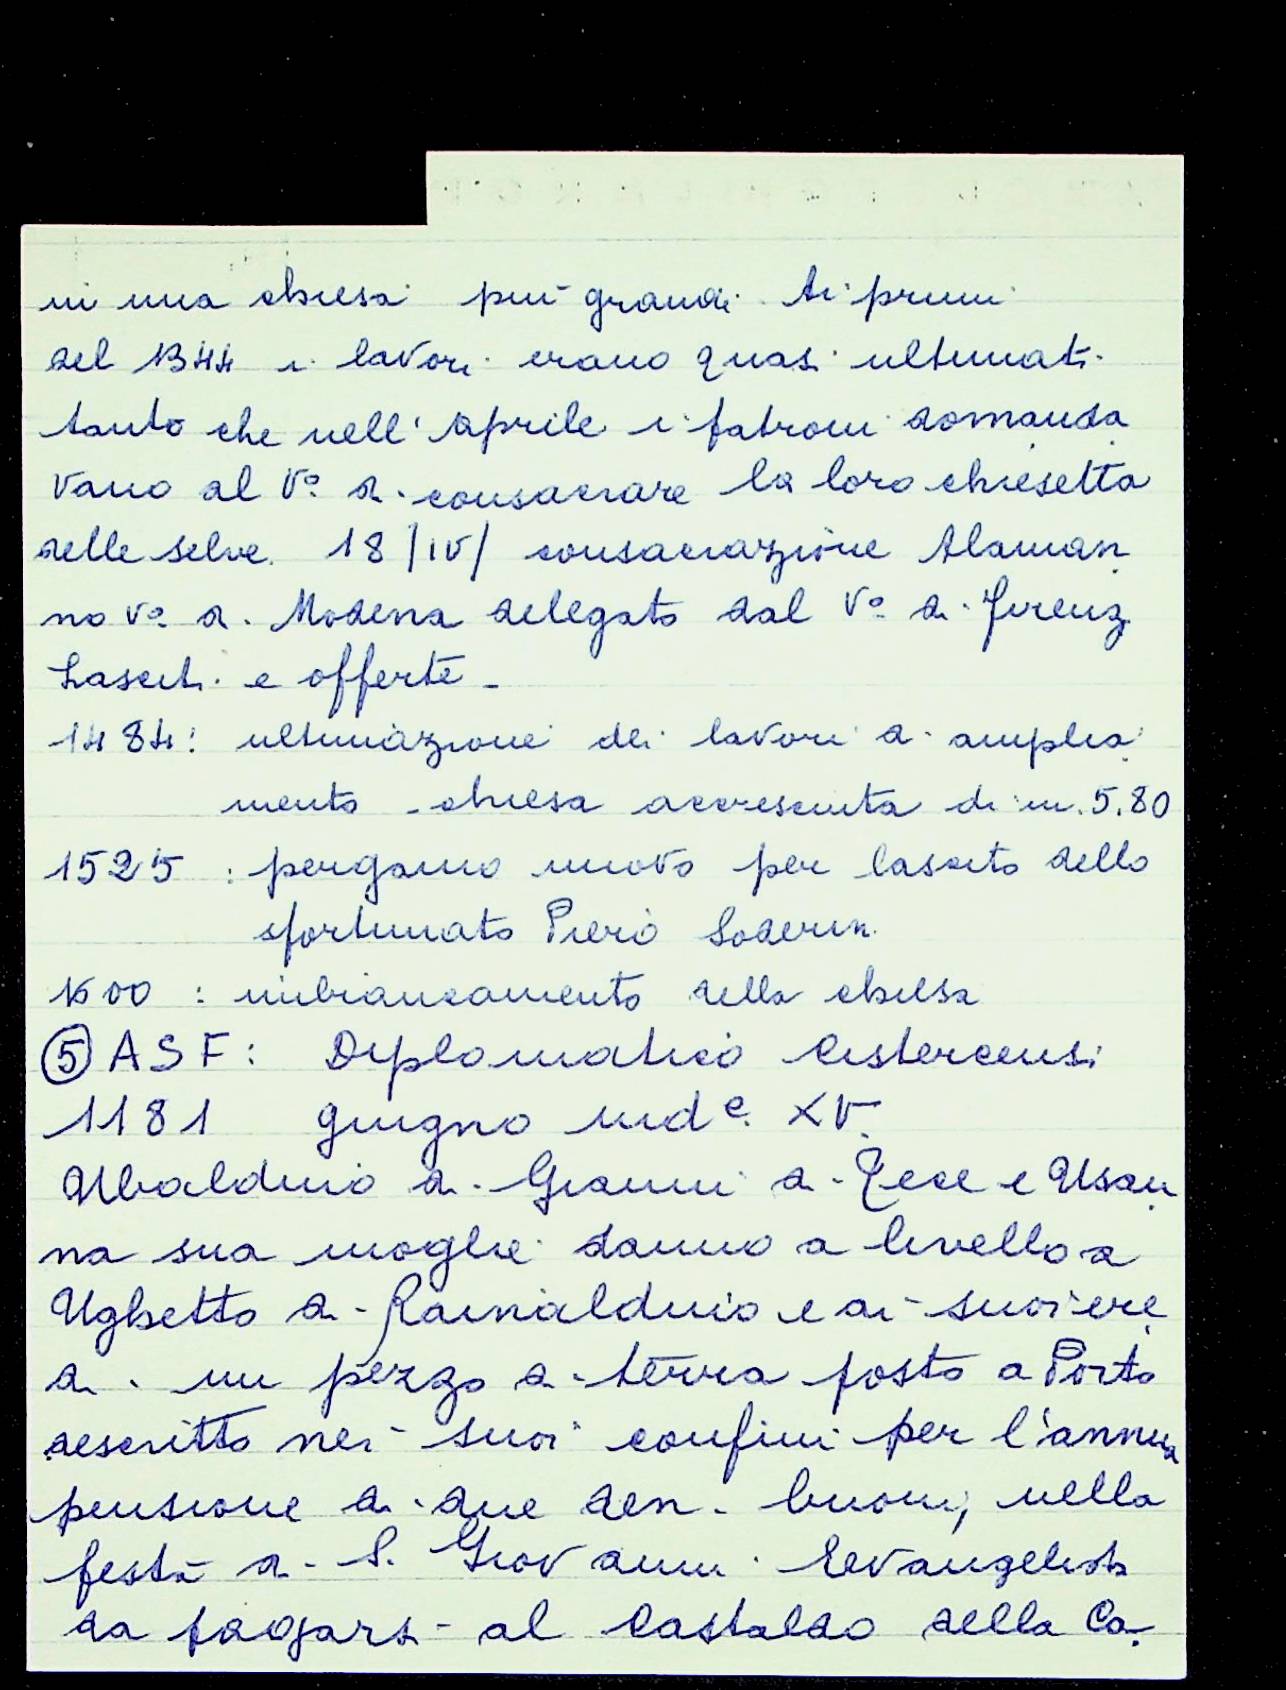 in una chiesa più grande. Ai primi
del 1344 i lavori erano quasi ultimati
tanto che nell'Aprile i patroni domanda
vano al Vº di consacrare la loro chiesetta
delle selve. 18/IV/ consacrazione Alaman
no Vº di Modena delegato dal Vº di Firenz
Lasciti e offerte -
1484: ultimazione dei lavori di amplia
mento - chiesa accresciuta di m. 5.80
1525 : pergamo nuovo per lascito dello
sfortunato Piero Soderin
1600 : imbiancamento della chiesa
⑤ ASF: Diplomatico Cistercensi
1181 giugno indᵉ. XV.
Ubaldino di Gianni di Tece e Usan
na sua moglie danno a livello a
Ughetto di Rainalduio e ai suoi ere
di un pezzo di terra posto a Porto
descritto nei suoi confini per l'annua
pensione di due den. buoni, nella
festa di S. Giovanni Evangelista
da pagarsi al Castaldo della Ca